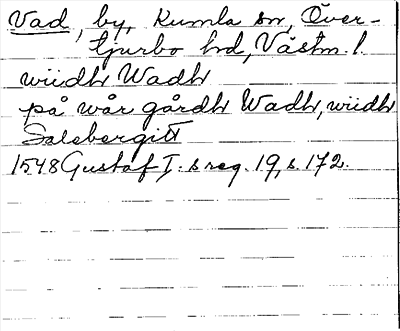 Vad, by, Kumla sn, Över-
tjurbo hd, Västm. l.
wiidh Wadh
på wår gårdh Wadh, wiidh
Salebergitt
1548 Gustaf I:s reg. 19, s. 172.